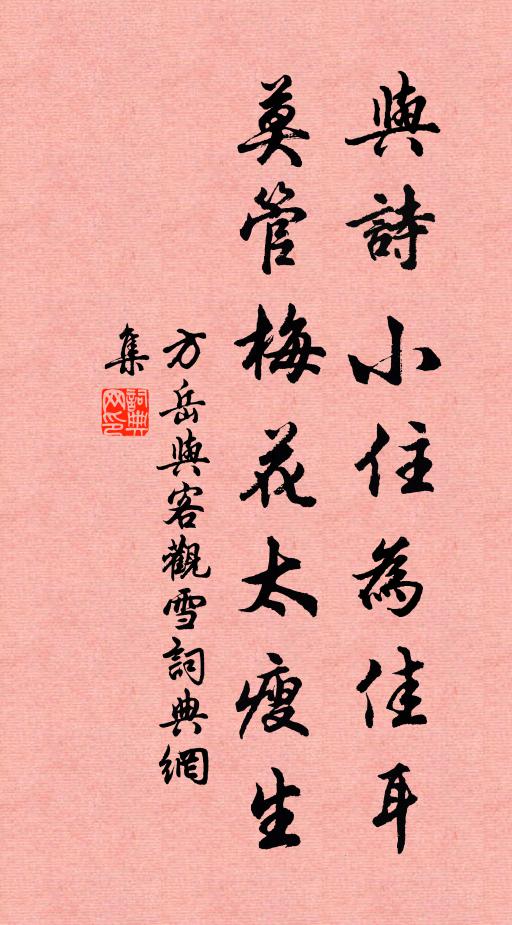 與詩小住為佳耳
莫管梅花太瘦生
方岳與客觀雪詞典網
集
詞典
网印